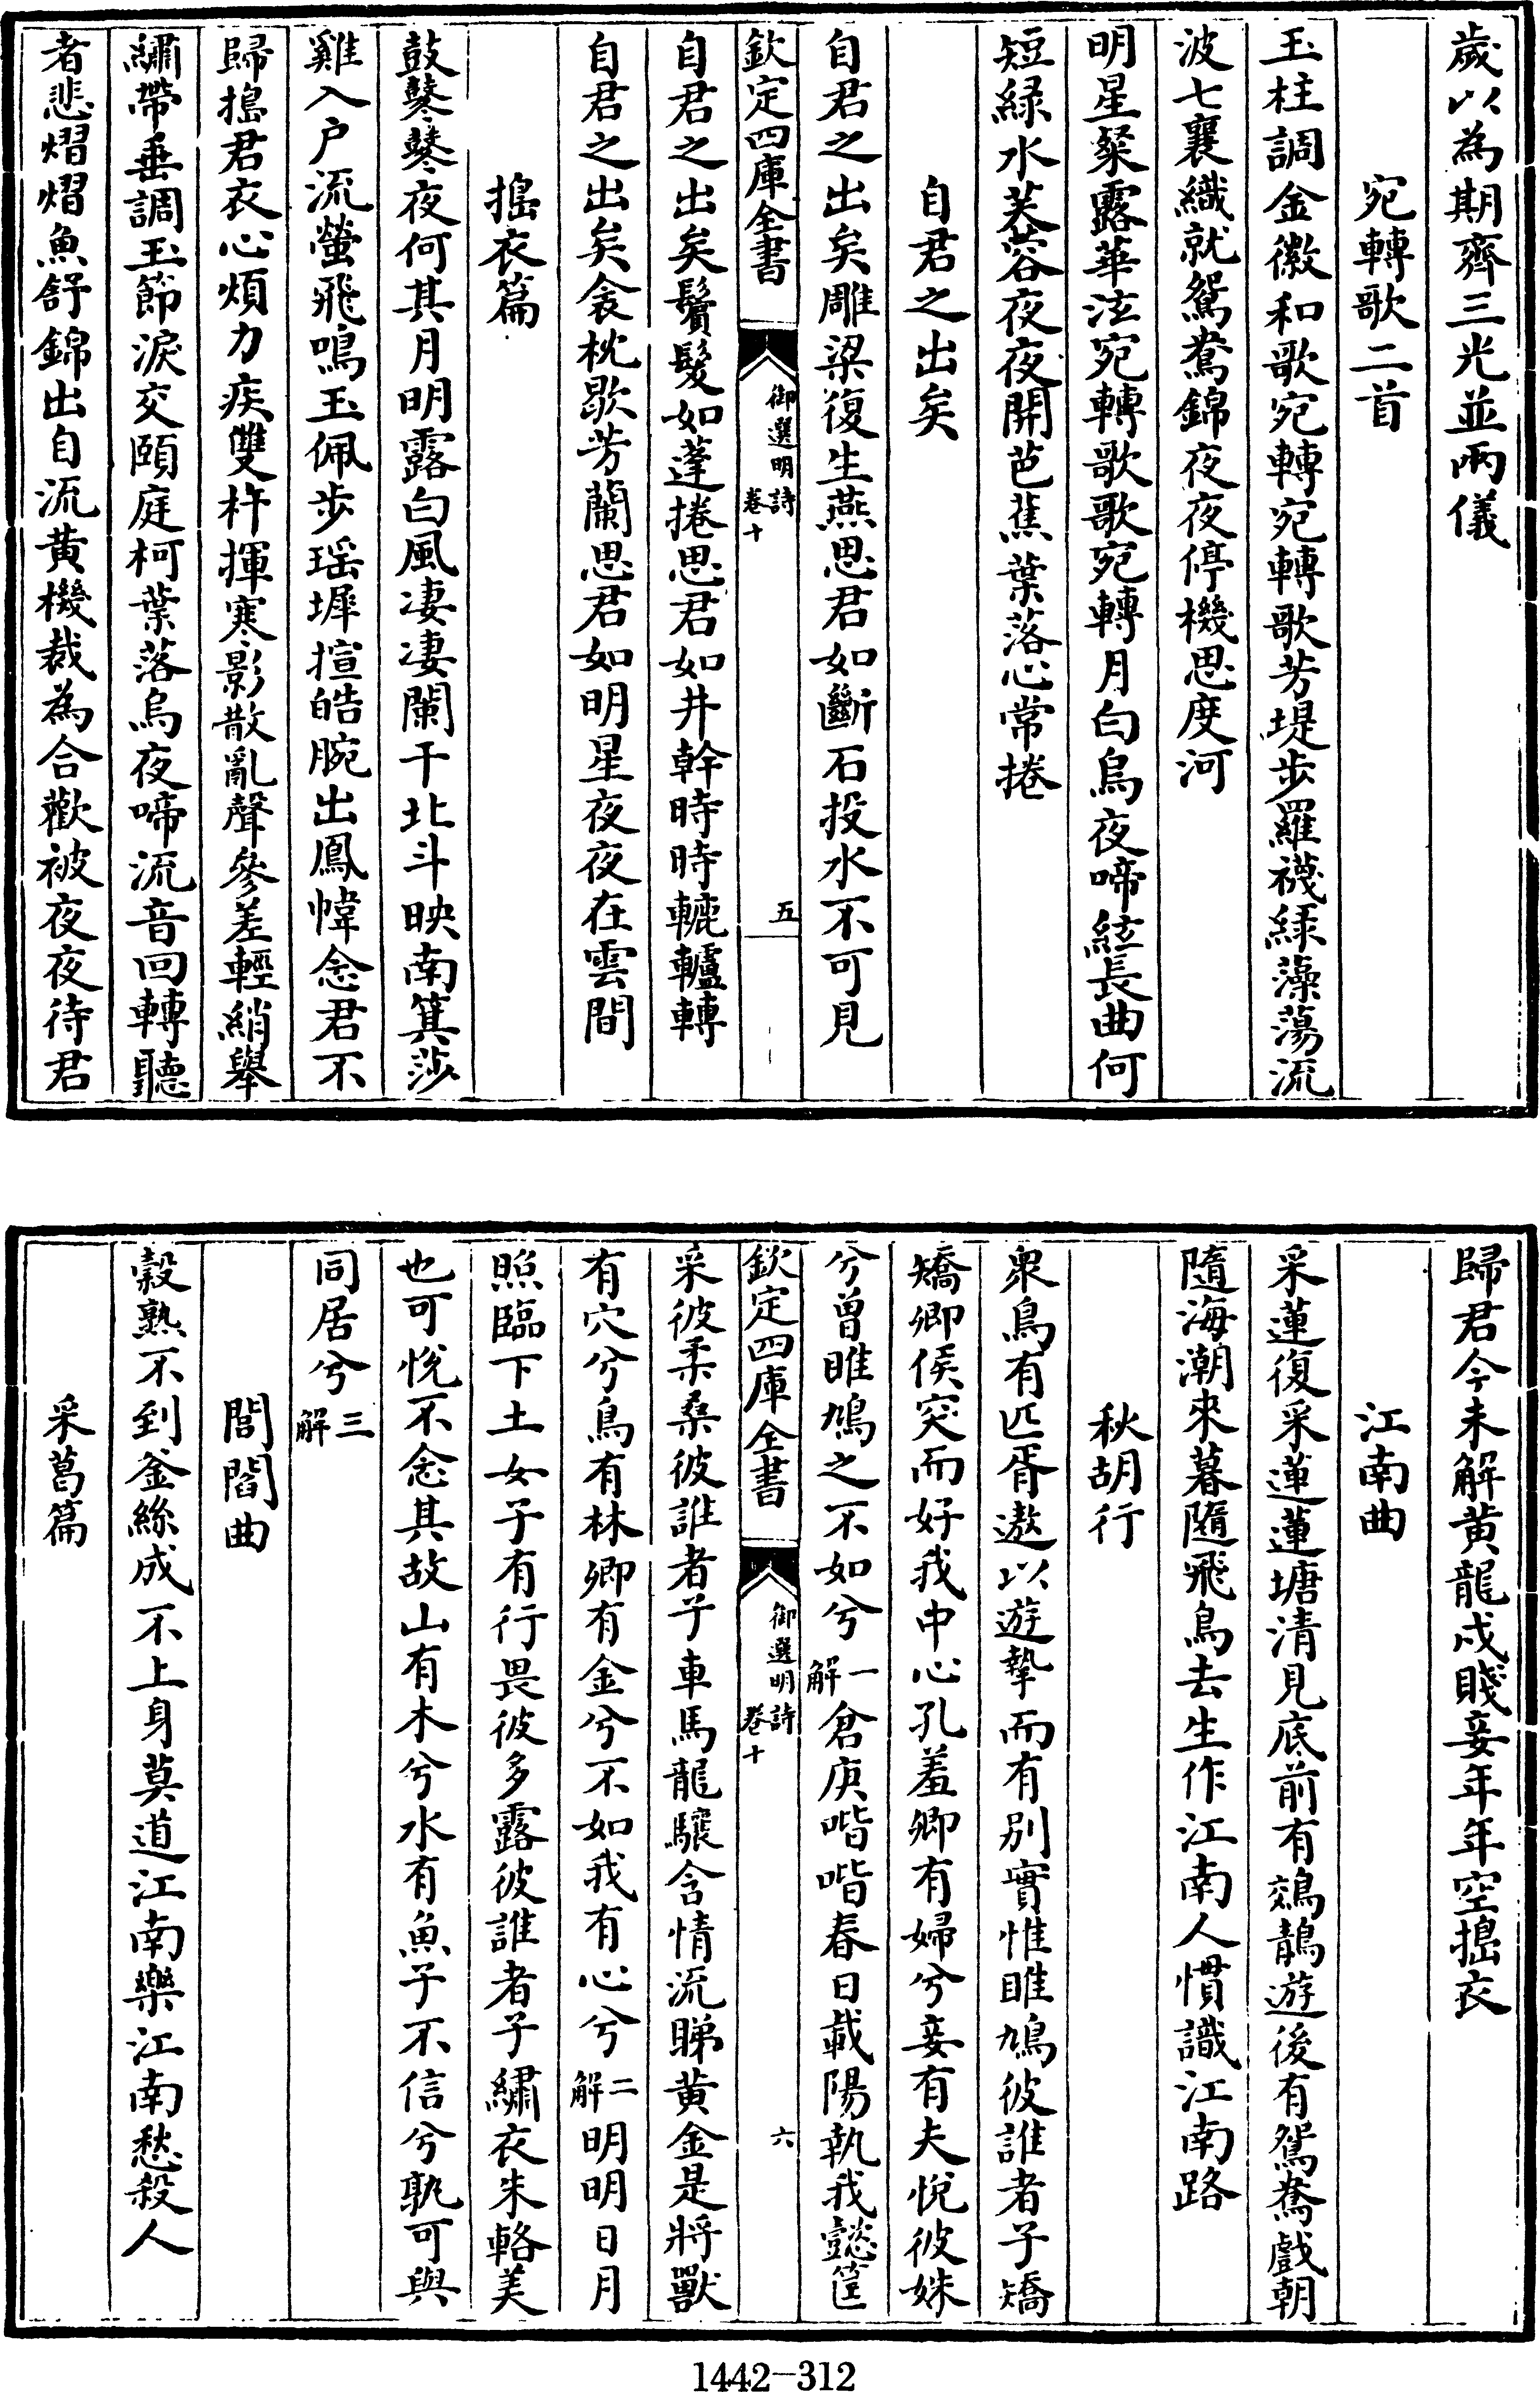 歲以為期齊三光並兩儀
宛轉歌二首
玉柱調金徽和歌宛轉宛轉歌芳堤步羅襪緑藻蕩流
波七襄織就鴛鴦錦夜夜停機思度河
明星粲露華泫宛轉歌歌宛轉月白烏夜啼絃長曲何
短緑水芙蓉夜夜開芭蕉葉落心常捲
自君之出矣
自君之出矣雕梁復生燕思君如斷石投水不可見
欽定四庫全書
御選明詩
卷十
五
自君之出矣鬢髮如蓬捲思君如井幹時時轆轤轉
自君之出矣衾枕歇芳蘭思君如明星夜夜在雲間
搗衣篇
鼓鼕鼕夜何其月明露白風凄凄闌干北斗映南箕莎
雞入户流螢飛鳴玉佩步瑶墀揎皓腕出鳳幃念君不
歸搗君衣心煩力疾雙杵揮寒影散亂聲參差輕綃舉
繡帶垂調玉節淚交頤庭柯葉落烏夜啼流音回轉聽
者悲熠熠魚舒錦出自流黄機裁為合歡被夜夜待君
歸君今未解黄龍戍賤妾年年空搗衣
江南曲
采蓮復采蓮蓮塘清見底前有鵁鶄遊後有鴛鴦戲朝
隨海潮來暮隨飛鳥去生作江南人慣識江南路
秋胡行
衆鳥有匹胥遨以遊摯而有别實惟雎鳩彼誰者子矯
矯卿侯突而好我中心孔羞卿有婦兮妾有夫悅彼姝
兮曾雎鳩之不如兮一解倉庚喈喈春日載陽執我懿筐
欽定四庫全書
御選明詩
卷十
六
采彼柔桑彼誰者子車馬龍驤含情流睇黄金是將獸
有穴兮鳥有林卿有金兮不如我有心兮二解明明日月
照臨下土女子有行畏彼多露彼誰者子繡衣朱輅美
也可悅不念其故山有木兮水有魚子不信兮孰可與
同居兮三解
閶閤曲
穀熟不到釡絲成不上身莫道江南樂江南愁殺人
采葛篇
1442-312